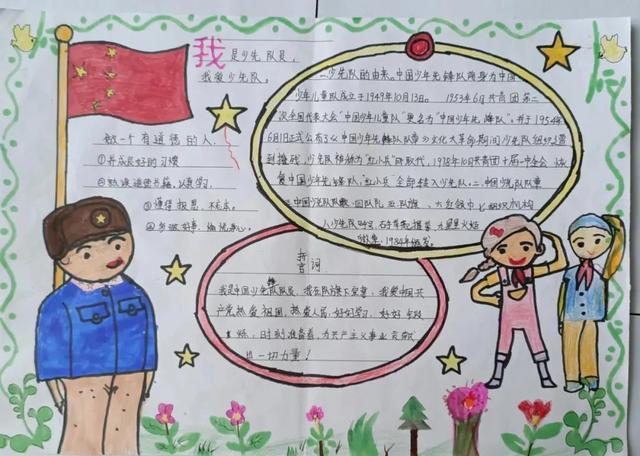 我是少先队员，
我爱少先队。
做一个有道德的人：
①养成良好的习惯
②热读进步书籍，认真学习，
③懂得报恩，不忘本，
一、少先队的由来，中国少年先锋队前身为中国
少年儿童队成立于1949年10月13日。1953年6月共青团第二
次全国代表大会"中国少年儿童队"更名为"中国少年先锋队"。并于1954年
6月1日正式公布了《中国少年先锋队队章》文化大革命期间少先队组织遭
到撤残，少先队被称为"红小兵"所取代，1978年10月共青团十届一中全会恢
复中国少年先锋队，"红小兵"全部转入少先队。二、少先队队章
中国少先队队歌、国队礼、五、队旗、六、红领巾七、组织机构
八、少先队呼号
1984年
誓词
我是中国少先队队员，我在队旗下宣誓：我爱中国共
产党热爱祖国，热爱人民，好好学习，好好锻
炼，时刻准备着，为共产主义事业贡献
出一切力量！